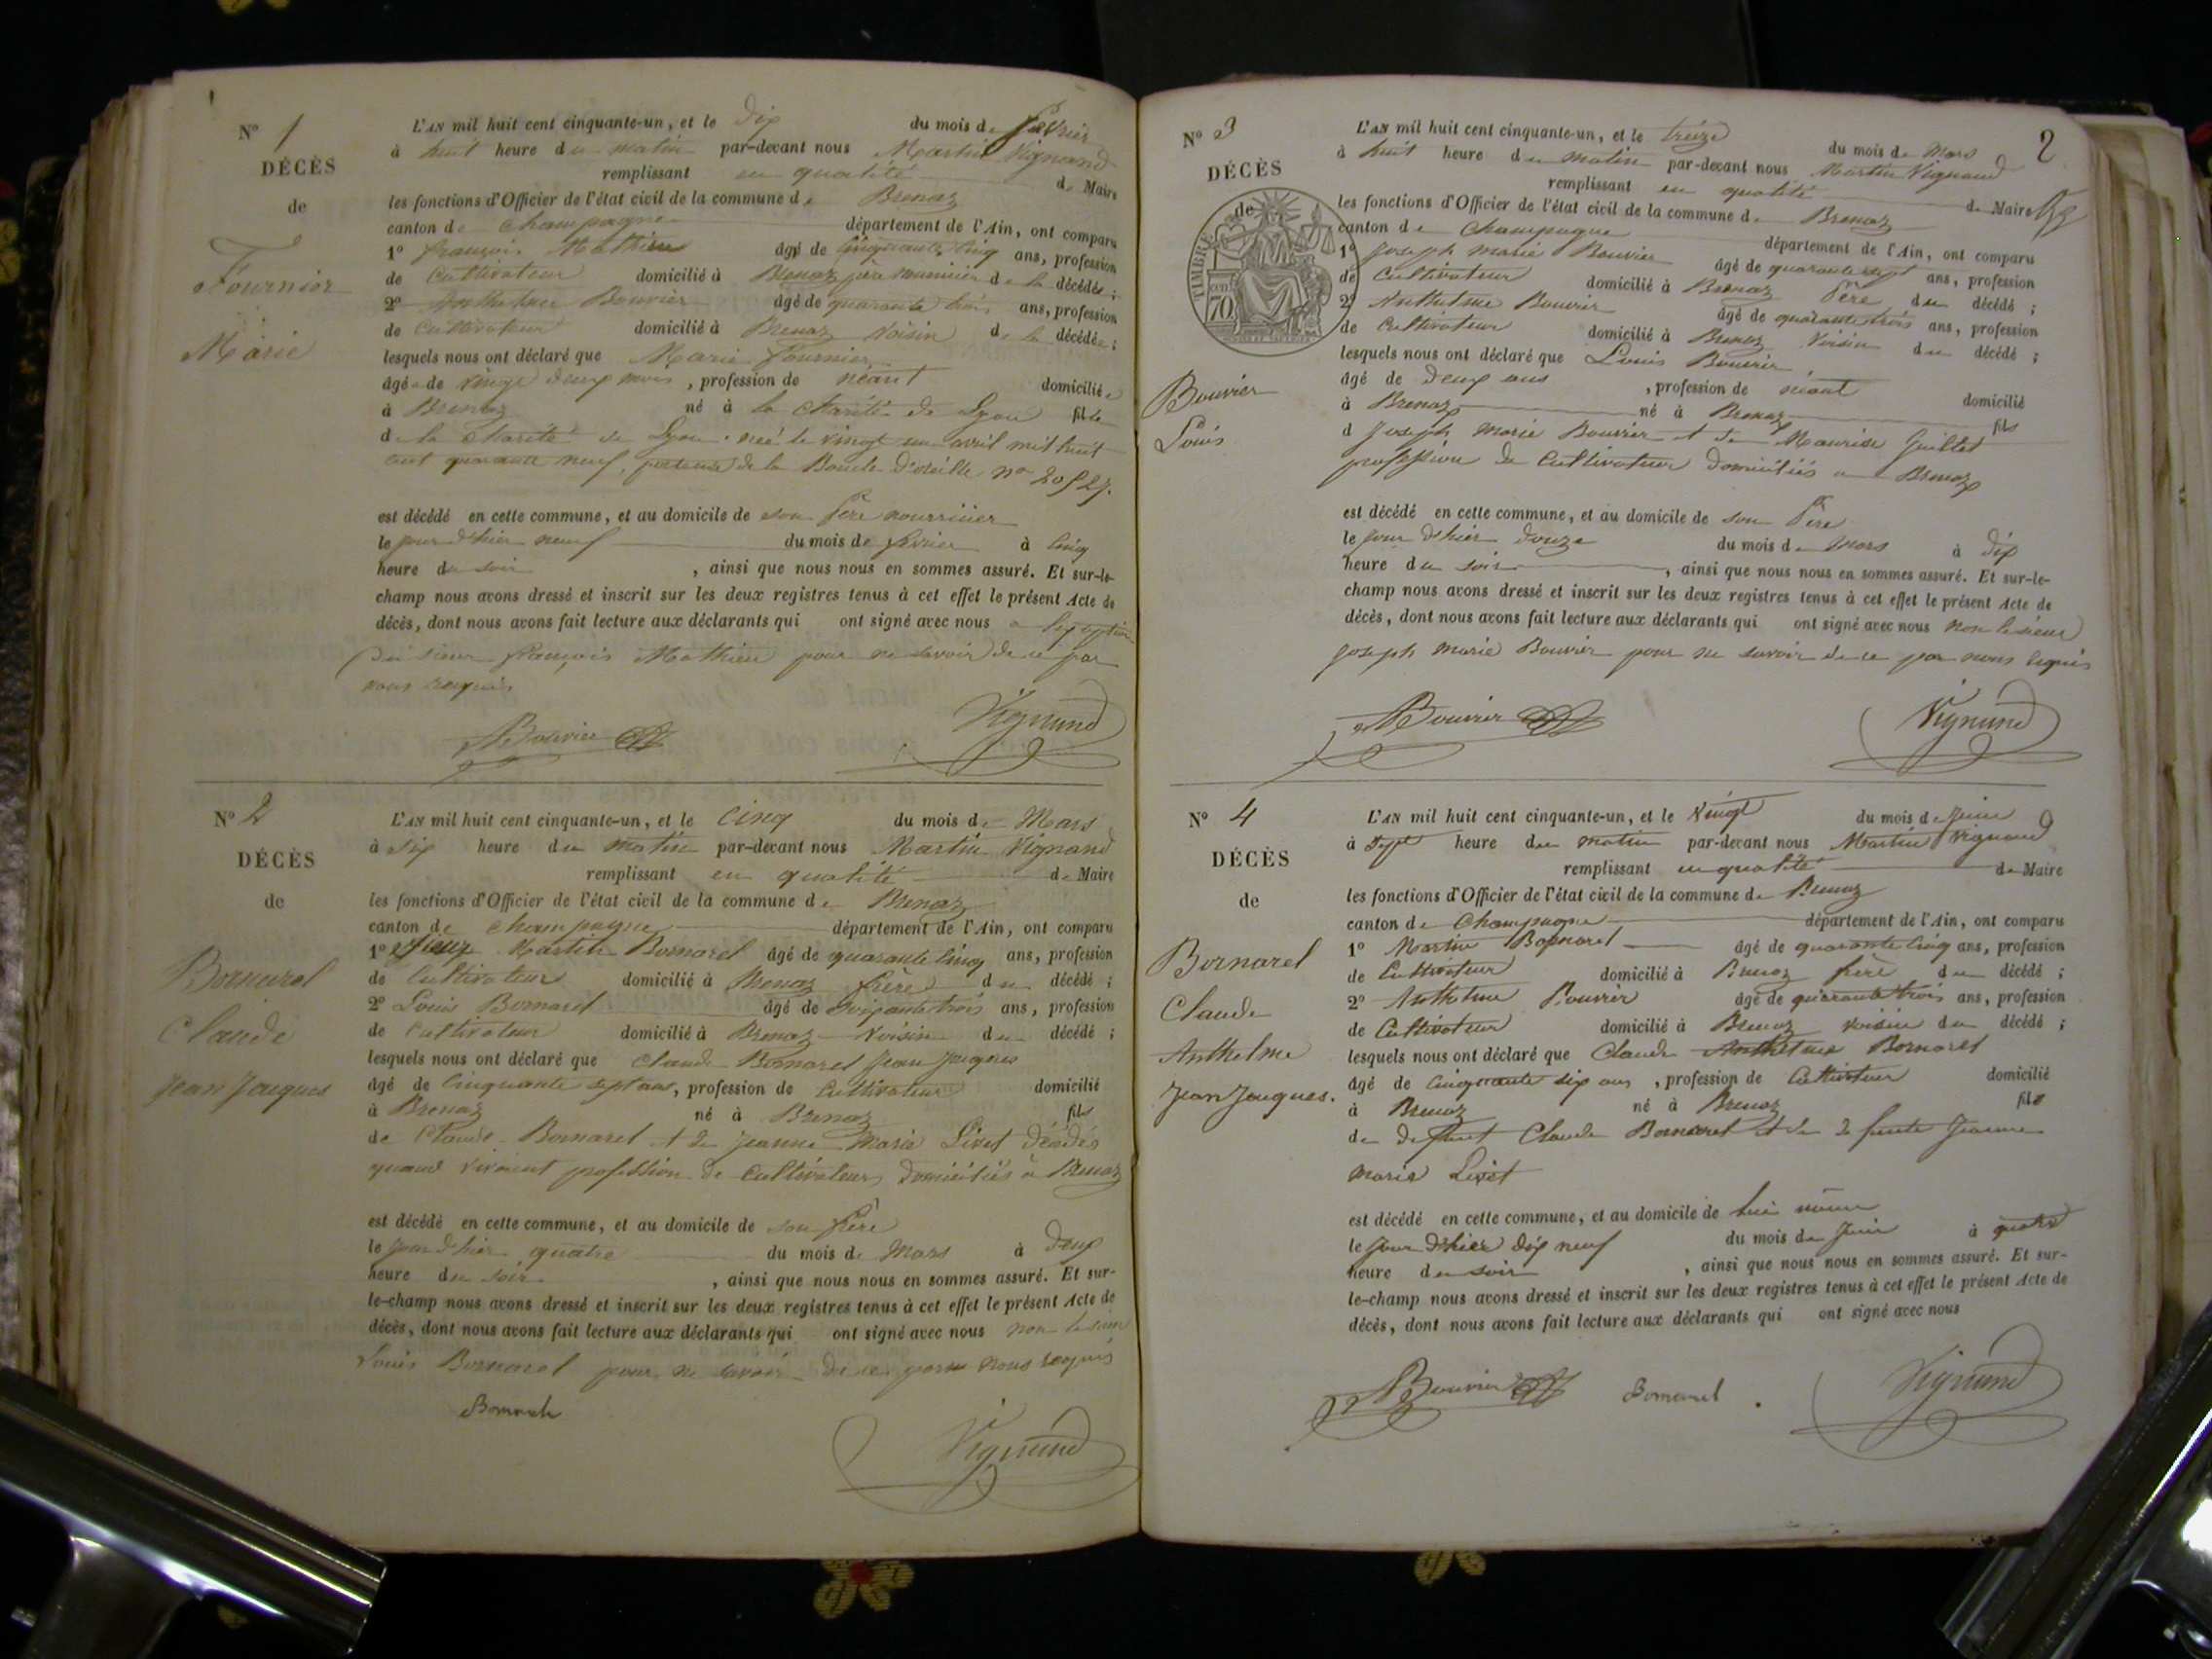 N° 1
DÉCÈS
de
Fournier
Marie
L'AN mil huit cent cinquante-un, et le dix du mois de février
à huit heure du matin par-devant nous Martin Vignand
remplissant en qualité de Maire
les fonctions d'Officier de l'état civil de la commune de Brenaz
canton de Champagne département de l'Ain, ont comparu
1° françois Mathieu âgé de cinquante cinq ans, profession
de Cultivateur domicilié à Brenaz père nourricier de la décédée ;
2° Anthelme Bouvier âgé de quarante trois ans, profession
de Cultivateur domicilié à Brenaz voisin de la décédée ;
lesquels nous ont déclaré que Marie fournier
âgée de vingt deux mois, profession de néant domiciliée
à Brenaz né à la Charité de Lyon fille
de la Charité de Lyon. née le vingt un avril mil huit
cent quarante neuf, porteuse de la Boucle d'oreille n°
est décédé en cette commune, et au domicile de son Père nourricier
le jour d'hier neuf du mois de février à cinq
heure du soir, ainsi que nous nous en sommes assuré. Et sur-le-
champ nous avons dressé et inscrit sur les deux registres tenus à cet effet le présent Acte de
décès, dont nous avons fait lecture aux déclarants qui ont signé avec nous
Du sieur françois Mathieu pour ne savoir de ce par
nous requis
Bouvier Vignand
N° 2
DÉCÈS
de
Bornarel
Claude
Jean Jacques
L'AN mil huit cent cinquante-un, et le cinq du mois de Mars
à six heure du matin par-devant nous Martin Vignand
remplissant en qualité de Maire
les fonctions d'Officier de l'état civil de la commune de Brenaz
canton de Champagne département de l'Ain, ont comparu
1° Martin Bornarel âgé de quarante cinq ans, profession
de Cultivateur domicilié à Brenaz frère du décédé ;
2° Louis Bornarel âgé de soixante trois ans, profession
de Cultivateur domicilié à Brenaz voisin du décédé ;
lesquels nous ont déclaré que Claude Bornarel Jean Jacques
âgé de cinquante sept ans, profession de Cultivateur domicilié
à Brenaz né à Brenaz fils
de Claude Bornarel et de Jeanne Marie Livet décédés
quand vivaient profession de cultivateurs domiciliés à Brenaz
est décédé en cette commune, et au domicile de son frère
le jour d'hier quatre du mois de Mars à deux
heure du soir, ainsi que nous nous en sommes assuré. Et sur-
le-champ nous avons dressé et inscrit sur les deux registres tenus à cet effet le présent Acte de
décès, dont nous avons fait lecture aux déclarants qui ont signé avec nous non le sieur
Louis Bornarel pour ne savoir de ce par nous requis
Bornarel
Vignand
2
N° 3
DÉCÈS
de
TIMBRE
70 cent
Bouvier
Louis
L'AN mil huit cent cinquante-un, et le treize du mois de Mars
à huit heure du matin par-devant nous Martin Vignand
remplissant en qualité de Maire
les fonctions d'Officier de l'état civil de la commune de Brenaz
canton de Champagne département de l'Ain, ont comparu
1° Joseph marie Bouvier âgé de quarante sept ans, profession
de Cultivateur domicilié à Brenaz Père du décédé ;
2° Anthelme Bouvier âgé de quarante trois ans, profession
de Cultivateur domicilié à Brenaz voisin du décédé ;
lesquels nous ont déclaré que Louis Bouvier
âgé de deux ans, profession de néant domicilié
à Brenaz né à Brenaz fils
d Joseph marie Bouvier et de Maurise Guillet
profession de Cultivateur domiciliés a Brenaz
est décédé en cette commune, et au domicile de son Père
le jour d'hier douze du mois de Mars à dix
heure du soir, ainsi que nous nous en sommes assuré. Et sur-le-
champ nous avons dressé et inscrit sur les deux registres tenus à cet effet le présent Acte de
décès, dont nous avons fait lecture aux déclarants qui ont signé avec nous non le sieur
Joseph marie Bouvier pour ne savoir de ce par nous requis
Bouvier Vignand
N° 4
DÉCÈS
de
Bornarel
Claude
Anthelme
Jean Jacques.
L'AN mil huit cent cinquante-un, et le vingt du mois de Juin
à sept heure du matin par-devant nous Martin Vignand
remplissant en qualité de Maire
les fonctions d'Officier de l'état civil de la commune de Brenaz
canton de Champagne département de l'Ain, ont comparu
1° Martin Bornarel âgé de quarante cinq ans, profession
de Cultivateur domicilié à Brenaz frère du décédé ;
2° Anthelme Bouvier âgé de quarante trois ans, profession
de Cultivateur domicilié à Brenaz voisin du décédé ;
lesquels nous ont déclaré que Claude Anthelme Bornarel
âgé de cinquante six ans, profession de Cultivateur domicilié
à Brenaz né à Brenaz fils
de defunt Claude Bornarel et de defunte Jeanne
marie Livet
est décédé en cette commune, et au domicile de lui même
le jour d'hier dix neuf du mois de Juin à quatre
heure du soir, ainsi que nous nous en sommes assuré. Et sur-
le-champ nous avons dressé et inscrit sur les deux registres tenus à cet effet le présent Acte de
décès, dont nous avons fait lecture aux déclarants qui ont signé avec nous
Bouvier Bornarel Vignand